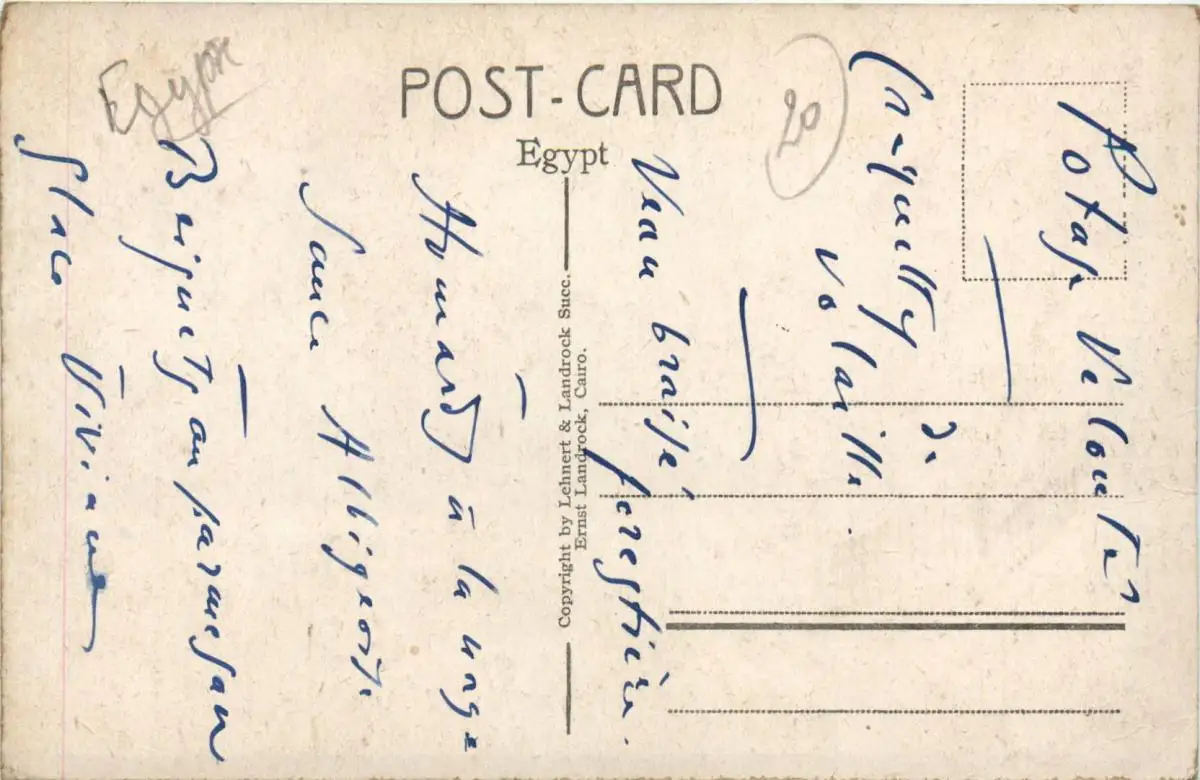 Egypt
POST-CARD
Egypt
Copyright by Lehnert & Landrock Succ.
Ernst Landrock, Cairo.
Potage Velouté
Croquettes de
volaille.
Veau braisé forestière.
Homards à la nage
Sauce Albigeoise
Beignets au parmesan
Glace Viviane